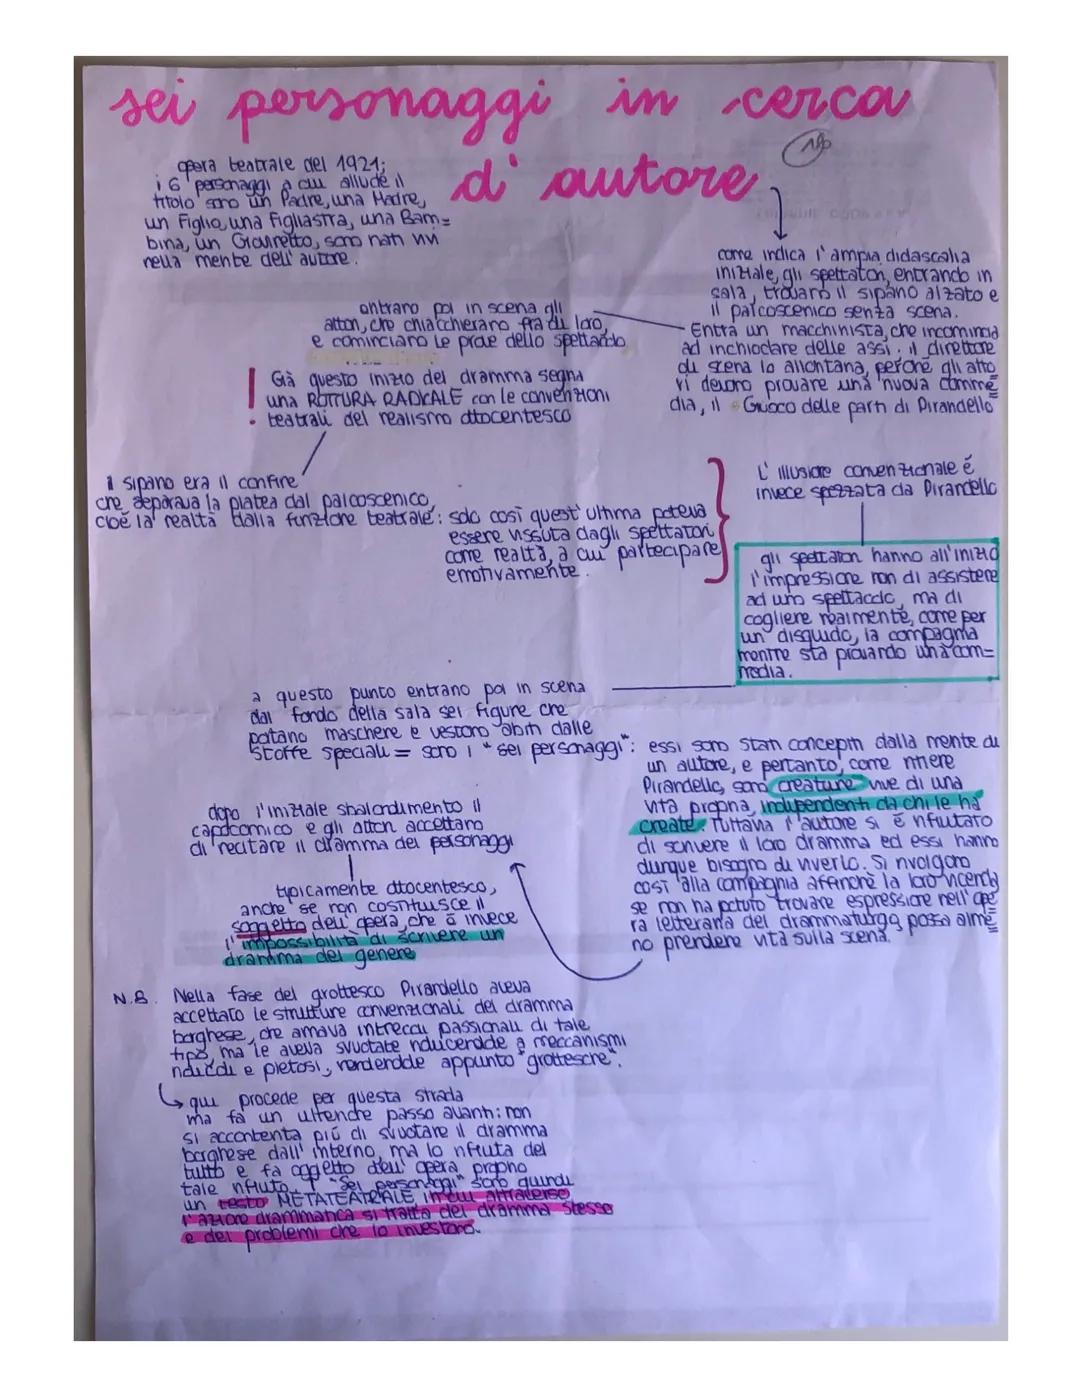 sei personaggi in cerca
d'autore
opera teatrale del 1921;
i 6 personaggi a cui allude il
titolo sono un Padre, una Madre,
un Figlio, una Figliastra, una Bam=
bina, un Giovinetto, sono nati vivi
nella mente dell'autore.
come indica l'ampia didascalia
iniziale, gli spettatori, entrando in
sala, trovano il sipario alzato e
il palcoscenico senza scena.
Entra un macchinista, che incomincia
ad inchiodare delle assi. il direttore
di scena lo allontana, perché gli atto
ri devono provare una nuova comme=
dia, il Giuoco delle parti di Pirandello
entrano poi in scena gli
attori, che chiacchierano fra di loro,
e cominciano le prove dello spettacolo
! Già questo inizio del dramma segna
una ROTTURA RADICALE con le convenzioni
teatrali del realismo ottocentesco
il sipario era il confine
che separava la platea dal palcoscenico,
cioè la realtà dalla finzione teatrale: solo così quest'ultima poteva
essere vissuta dagli spettatori
come realtà, a cui partecipare
emotivamente.
L'illusione convenzionale è
invece spezzata da Pirandello
gli spettatori hanno all'inizio
l'impressione non di assistere
ad uno spettacolo, ma di
cogliere realmente, come per
un disguido, la compagnia
mentre sta provando una com=
media.
a questo punto entrano poi in scena
dal fondo della sala sei figure che
portano maschere e vestono abiti dalle
stoffe speciali = sono i "sei personaggi": essi sono stati concepiti dalla mente di
un autore, e pertanto, come ritiene
Pirandello, sono creature vive di una
vita propria, indipendenti da chi le ha
create. Tuttavia l'autore si è rifiutato
di scrivere il loro dramma ed essi hanno
dunque bisogno di viverlo. Si rivolgono
così alla compagnia affinché la loro vicenda
se non ha potuto trovare espressione nell'ope
ra letteraria del drammaturgo, possa alme=
no prendere vita sulla scena.
dopo l'iniziale sbalordimento il
capocomico e gli attori accettano
di recitare il dramma dei personaggi
tipicamente ottocentesco,
anche se non costituisce il
soggetto dell'opera, che è invece
l'impossibilità di scrivere un
dramma del genere
N.B. Nella fase del grottesco Pirandello aveva
accettato le strutture convenzionali del dramma
borghese, che amava intrecci passionali di tale
tipo, ma le aveva svuotate riducendole a meccanismi
ridicoli e pietosi, rendendole appunto "grottesche".
qui procede per questa strada
ma fa un ulteriore passo avanti: non
si accontenta più di svuotare il dramma
borghese dall'interno, ma lo rifiuta del
tutto e fa oggetto dell'opera proprio
tale rifiuto. I "Sei personaggi" sono quindi
un testo METATEATRALE in cui attraverso
l'azione drammatica si tratta del dramma stesso
e dei problemi che lo investono.